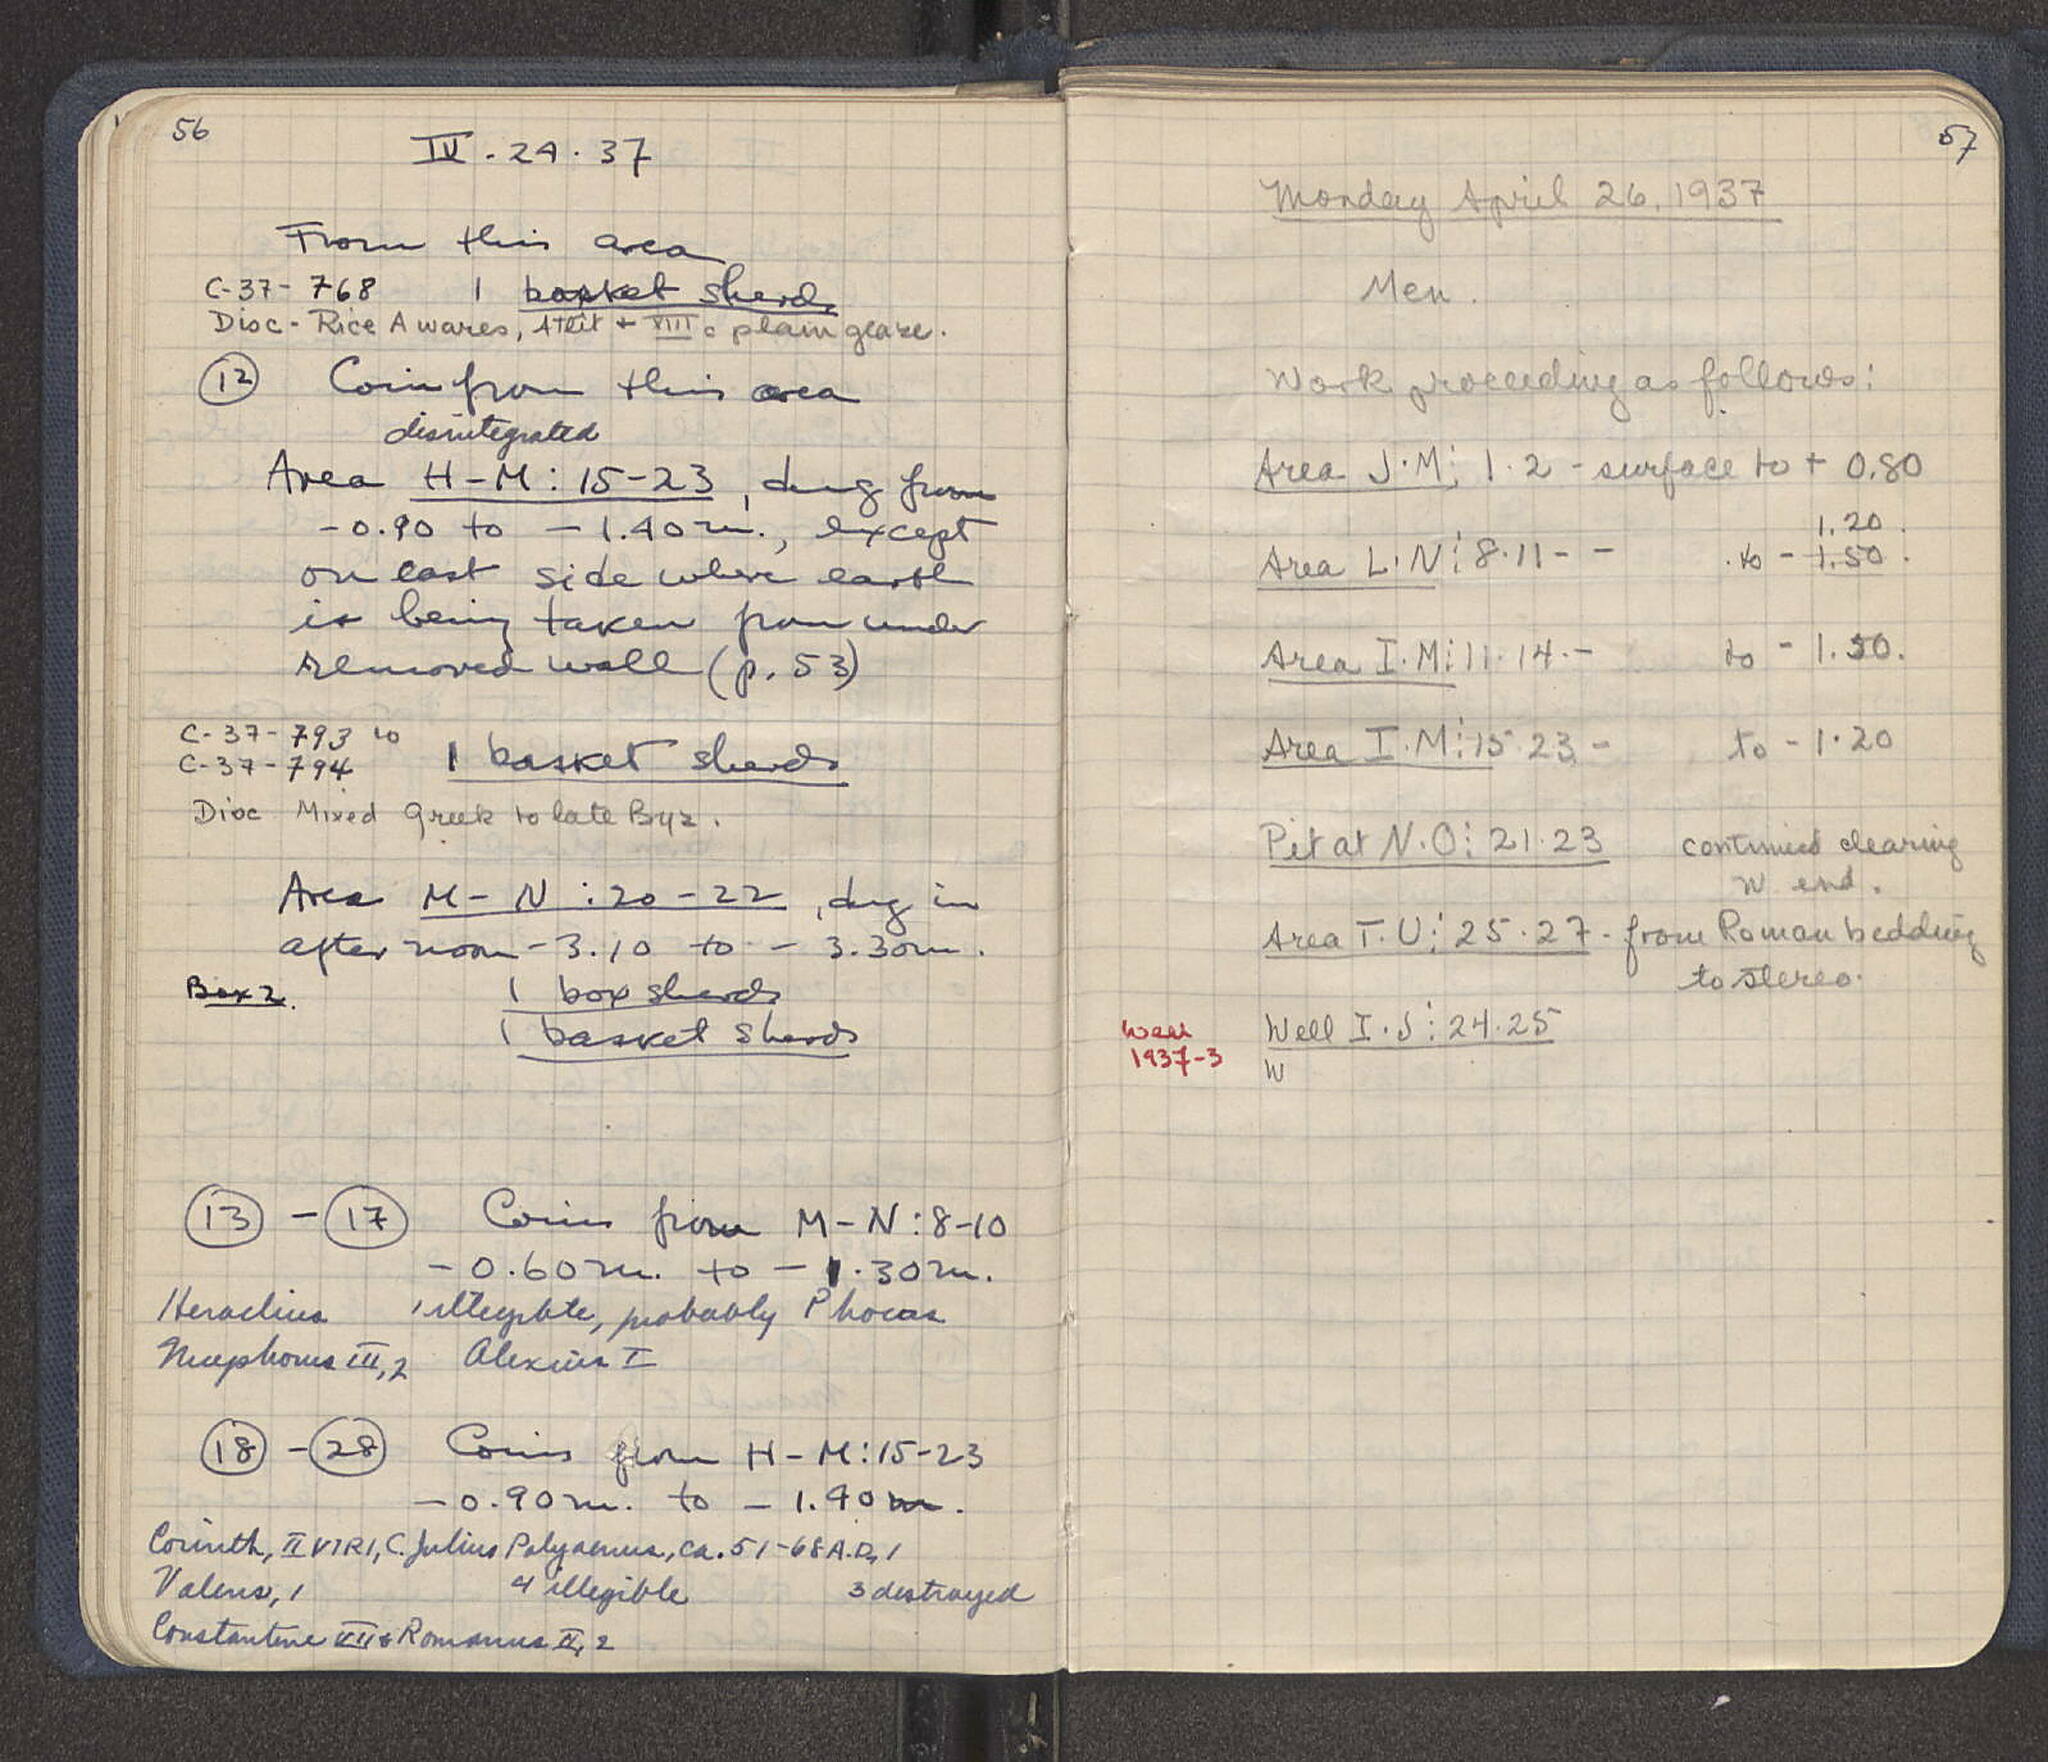 56
IV . 24 . 37
From this area
C-37-768 1 basket sherds
Disc - Rice A wares, Attit + XIII c plain glaze.
12 Coin from this area
disintegrated
Area H-M : 15-23, dug from
-0.90 to -1.40 m., except
on east side where earth
is being taken from under
removed wall (p. 53)
C-37-793 to
C-37-794
1 basket sherds
Disc Mixed Greek to late Byz.
Area M-N : 20-22, dug in
afternoon -3.10 to -3.30m.
Box 2. 1 box sherds
1 basket sherds
13 - 17 Coins from M-N : 8-10
-0.60 m. to -1.30 m.
Heraclius 1 illegible, probably Phocas
Nicephorus III, 2 Alexius I
18 - 28 Coins from H-M : 15-23
-0.90 m. to -1.40 m.
Corinth, II VIRI, C. Julius Polyaenus, ca. 51-68 A.D., 1
Valens, 1 4 illegible 3 destroyed
Constantine VII & Romanus II, 2
57
Monday April 26, 1937
Men.
Work proceeding as follows:
Area J.M: 1.2 - surface to + 0.80
1.20.
Area L.N: 8.11 - - to - 1.50.
Area I.M: 11.14. - to - 1.30.
Area I.M: 15.23 - to - 1.20
Pit at N.O: 21.23 continued clearing
W end.
Area T.U: 25.27 - from Roman bedding
to stereo.
Well
1937-3
Well I.J: 24.25
W